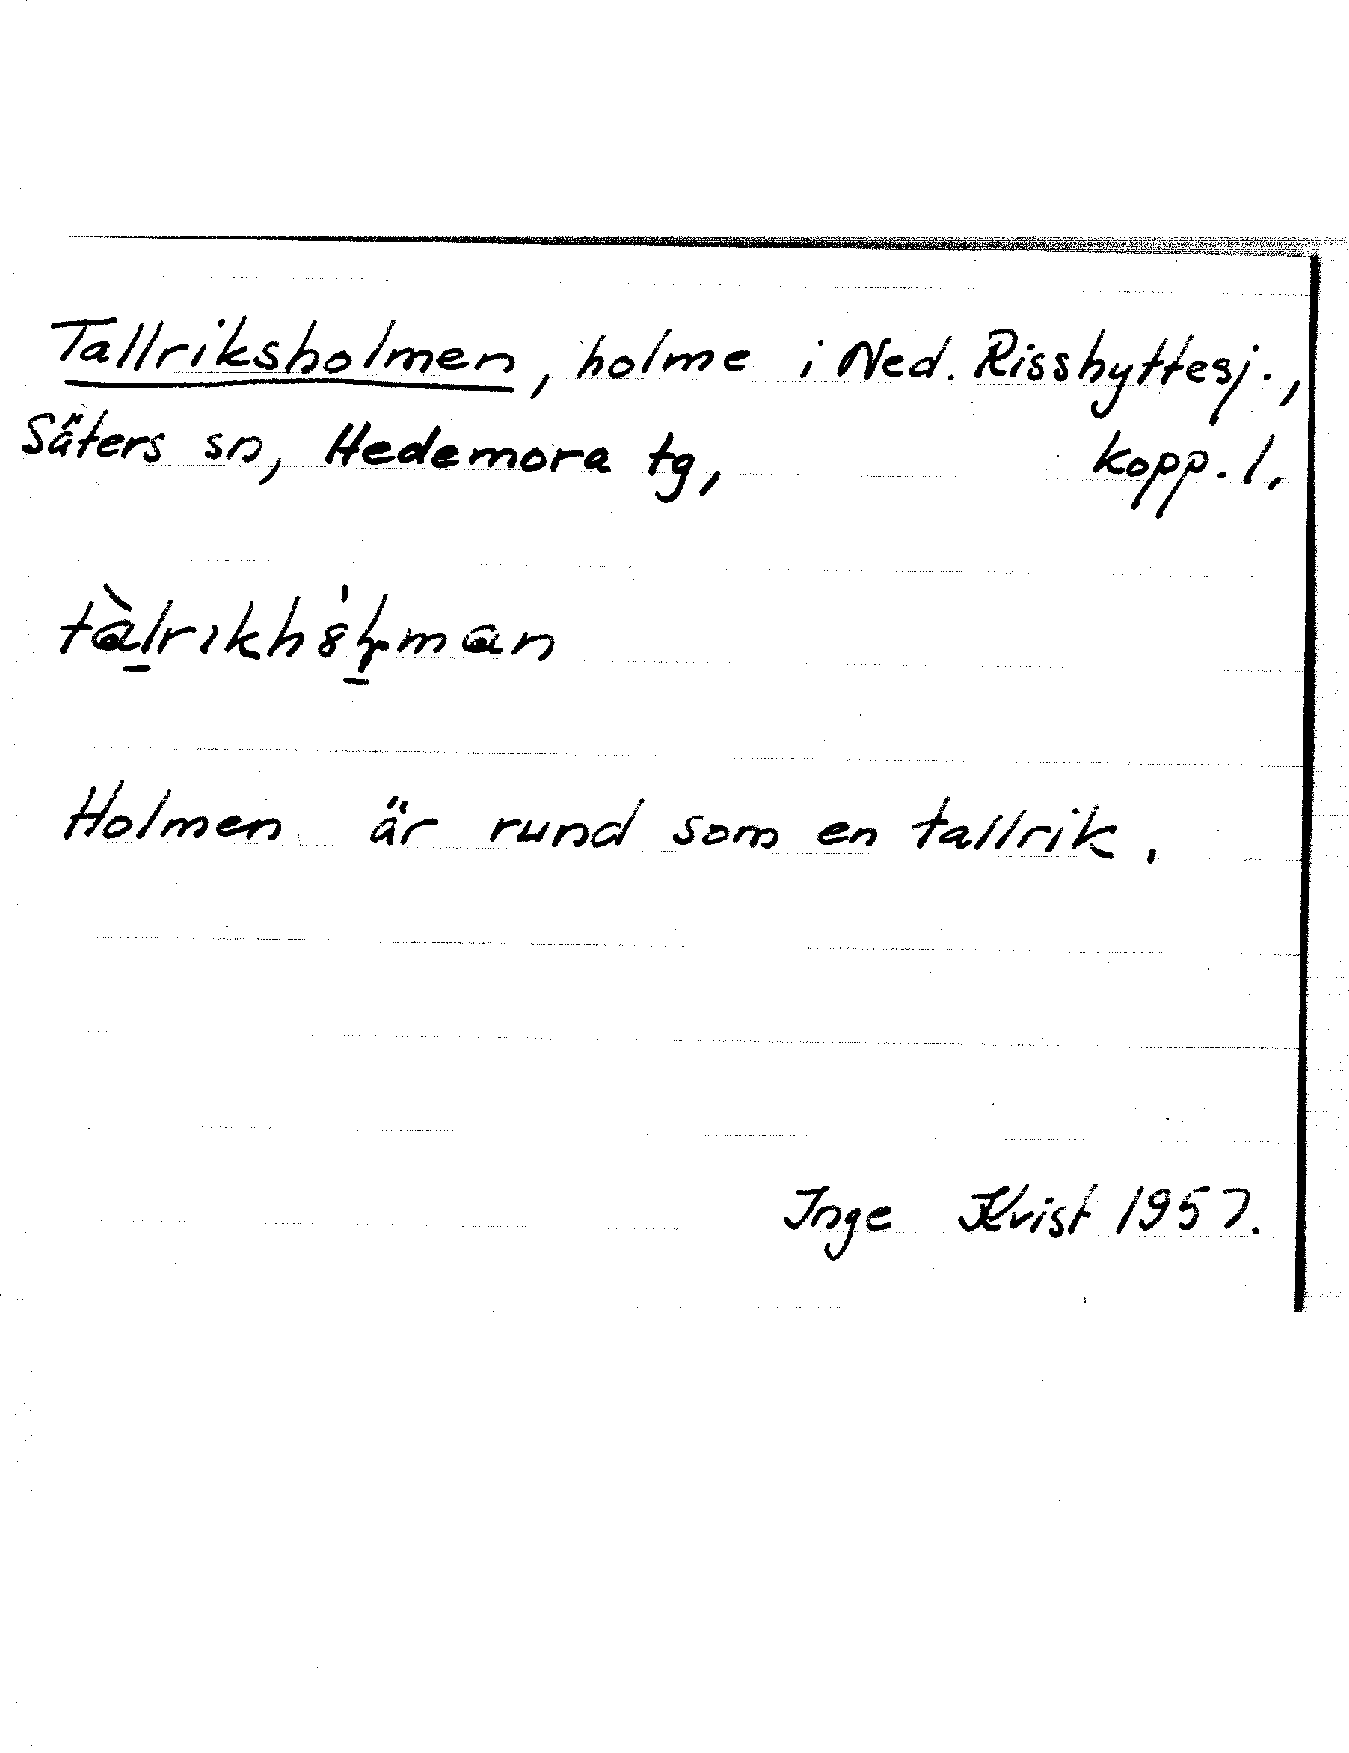 Tallriksholmen, holme i Ned. Risshyttesj.,
Säters sn, Hedemora tg, kopp. l.
tàlrıkhȯl̥man
Holmen är rund som en tallrik.
Inge Kvist 1957.